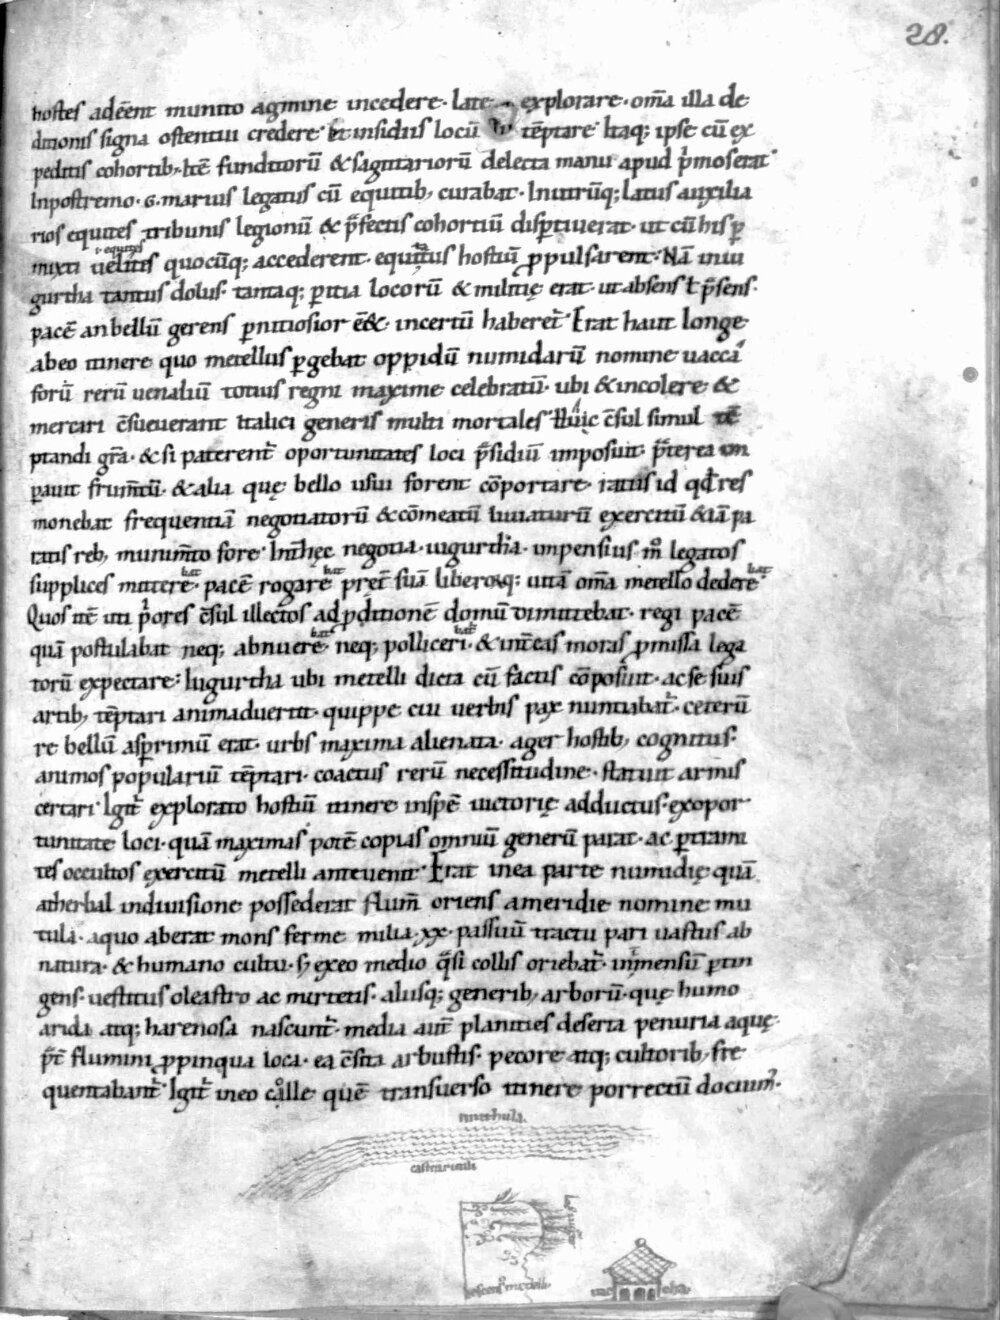 28.
hostes adēēnt munito agmine incedere· late explorare· om̄a illa de
ditionis signa ostentui credere· & insidiis locū tēptare· Itaq; ipse cū ex
peditis cohortib; itē funditorū & sagittariorū delecta manu apud p̀mos erat·
In postremo· G. marius legatus cū equitib; curabat· In utrūq; latus auxilia
rios equites tribunis legionū & p̄fectis cohortiū disp̱tiuerat· ut cū his p̱
mixti uelites quocūq; accederent· equitatus hostiū ꝓpulsarent· Nā in iu
gurtha tantus dolus· tantaq; p̱itia locorū & militię erat· ut absens ł p̄sens·
pacē an bellū gerens p̱nitiosior ēē&· incertū haberet̄· Erat haut longe
ab eo itinere quo metellus p̱gebat oppidū numidarū nomine uacca
forū rerū uenaliū totius regni maxime celebratū· ubi & incolere &
mercari c̄sueuerant italici generis multi mortales· Huic c̄sul simul tē
ptandi gr̄a· & si paterent̄ oportunitates loci p̄sidiū imposuit· p̄terea im
p̱auit frum̄tū· & alia quę bello usui forent cōportare· ratus id qd̄ res
monebat frequentiā negotiatorū & cōmeatū iuuaturū exercitū & iā pa
ratis reb; munim̄to fore· Int̄ hęc negotia· iugurtha· impensius m̊ legatos
supplices mittere· pacē rogare· p̄ret̄ suā liberorūq; uitā om̄a metello dedere·
Quos itē uti p̀ores c̄sul illectos ad ꝓditionē domū dimittebat· regi pacē
quā postulabat neq; abnuere· neq; polliceri· & int̄ eas moras ꝓmissa lega
torū expectare· Iugurtha ubi metelli dicta cū factis cōposuit· ac se suis
artib; tēptari animaduertit· quippe cui uerbis pax nuntiabat̄· ceterū
re bellū asp̱rimū erat· urbs maxima alienata· ager hostib; cognitus·
animos populariū tēptari· coactus rerū necessitudine· statuit armis
certari· Igit̄ explorato hostiū itinere in spē uictorię adductus· ex opor
tunitate loci· quā maximas potē copias omniū generū parat· ac p̱ trami
tes occultos exercitū metelli anteuenit· Erat in ea parte numidię quā
atherbal in diuisione possederat flum̄ oriens a meridie nomine mu
tula· a quo aberat mons ferme milia ·xx· passuū tractu pari uastus ab
natura· & humano cultu· s; ex eo medio q̄si collis oriebat̄· inmensū p̱tin
gens· uestitus oleastro ac mirtetis· aliisq; generib; arborū· quę humo
arida atq; harenosa nascunt̄· media aut̄ planities deserta penuria aquę·
p̄t̄ flumini ꝓpinqua loca· ea c̄sita arbustis· pecore atq; cultorib; fre
quentabant̄· Igit̄ in eo calle quē transuerso itinere porrectū docuim̉·